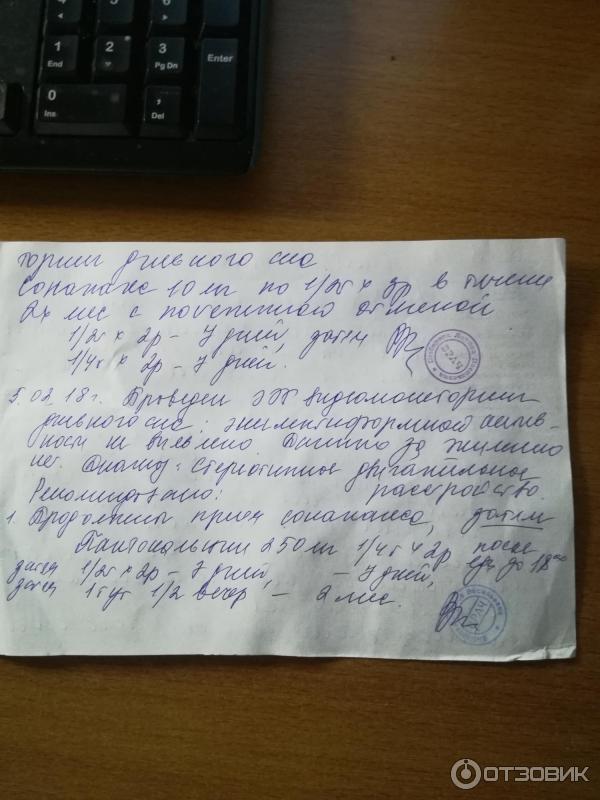 1
End
2
3
Pg Dn
Enter
0
Ins
,
Del
торинг дневного сна.
Сонапакс 10 мг по 1/2т х 3р в течение
2х мес с постепенной отменой
1/2т х 2р - 7 дней, затем
1/4т х 2р - 7 дней.
5.02.18г. Проведен ЭЭГ видеомониторинг
дневного сна: эпилептиформной актив-
ности не выявлено. Данных за эпилепсию
нет. Диагноз: Стереотипное двигательное
расстройство.
Рекомендовано:
1. Продолжить прием сонапакса, затем
Пантокальцин 250 мг 1/4т х 2р после
еды до 18 00
- 7 дней,
затем 1/2т х 2р - 7 дней,
затем 1т утр 1/2 вечер - 2 мес.
ОТЗОВИК